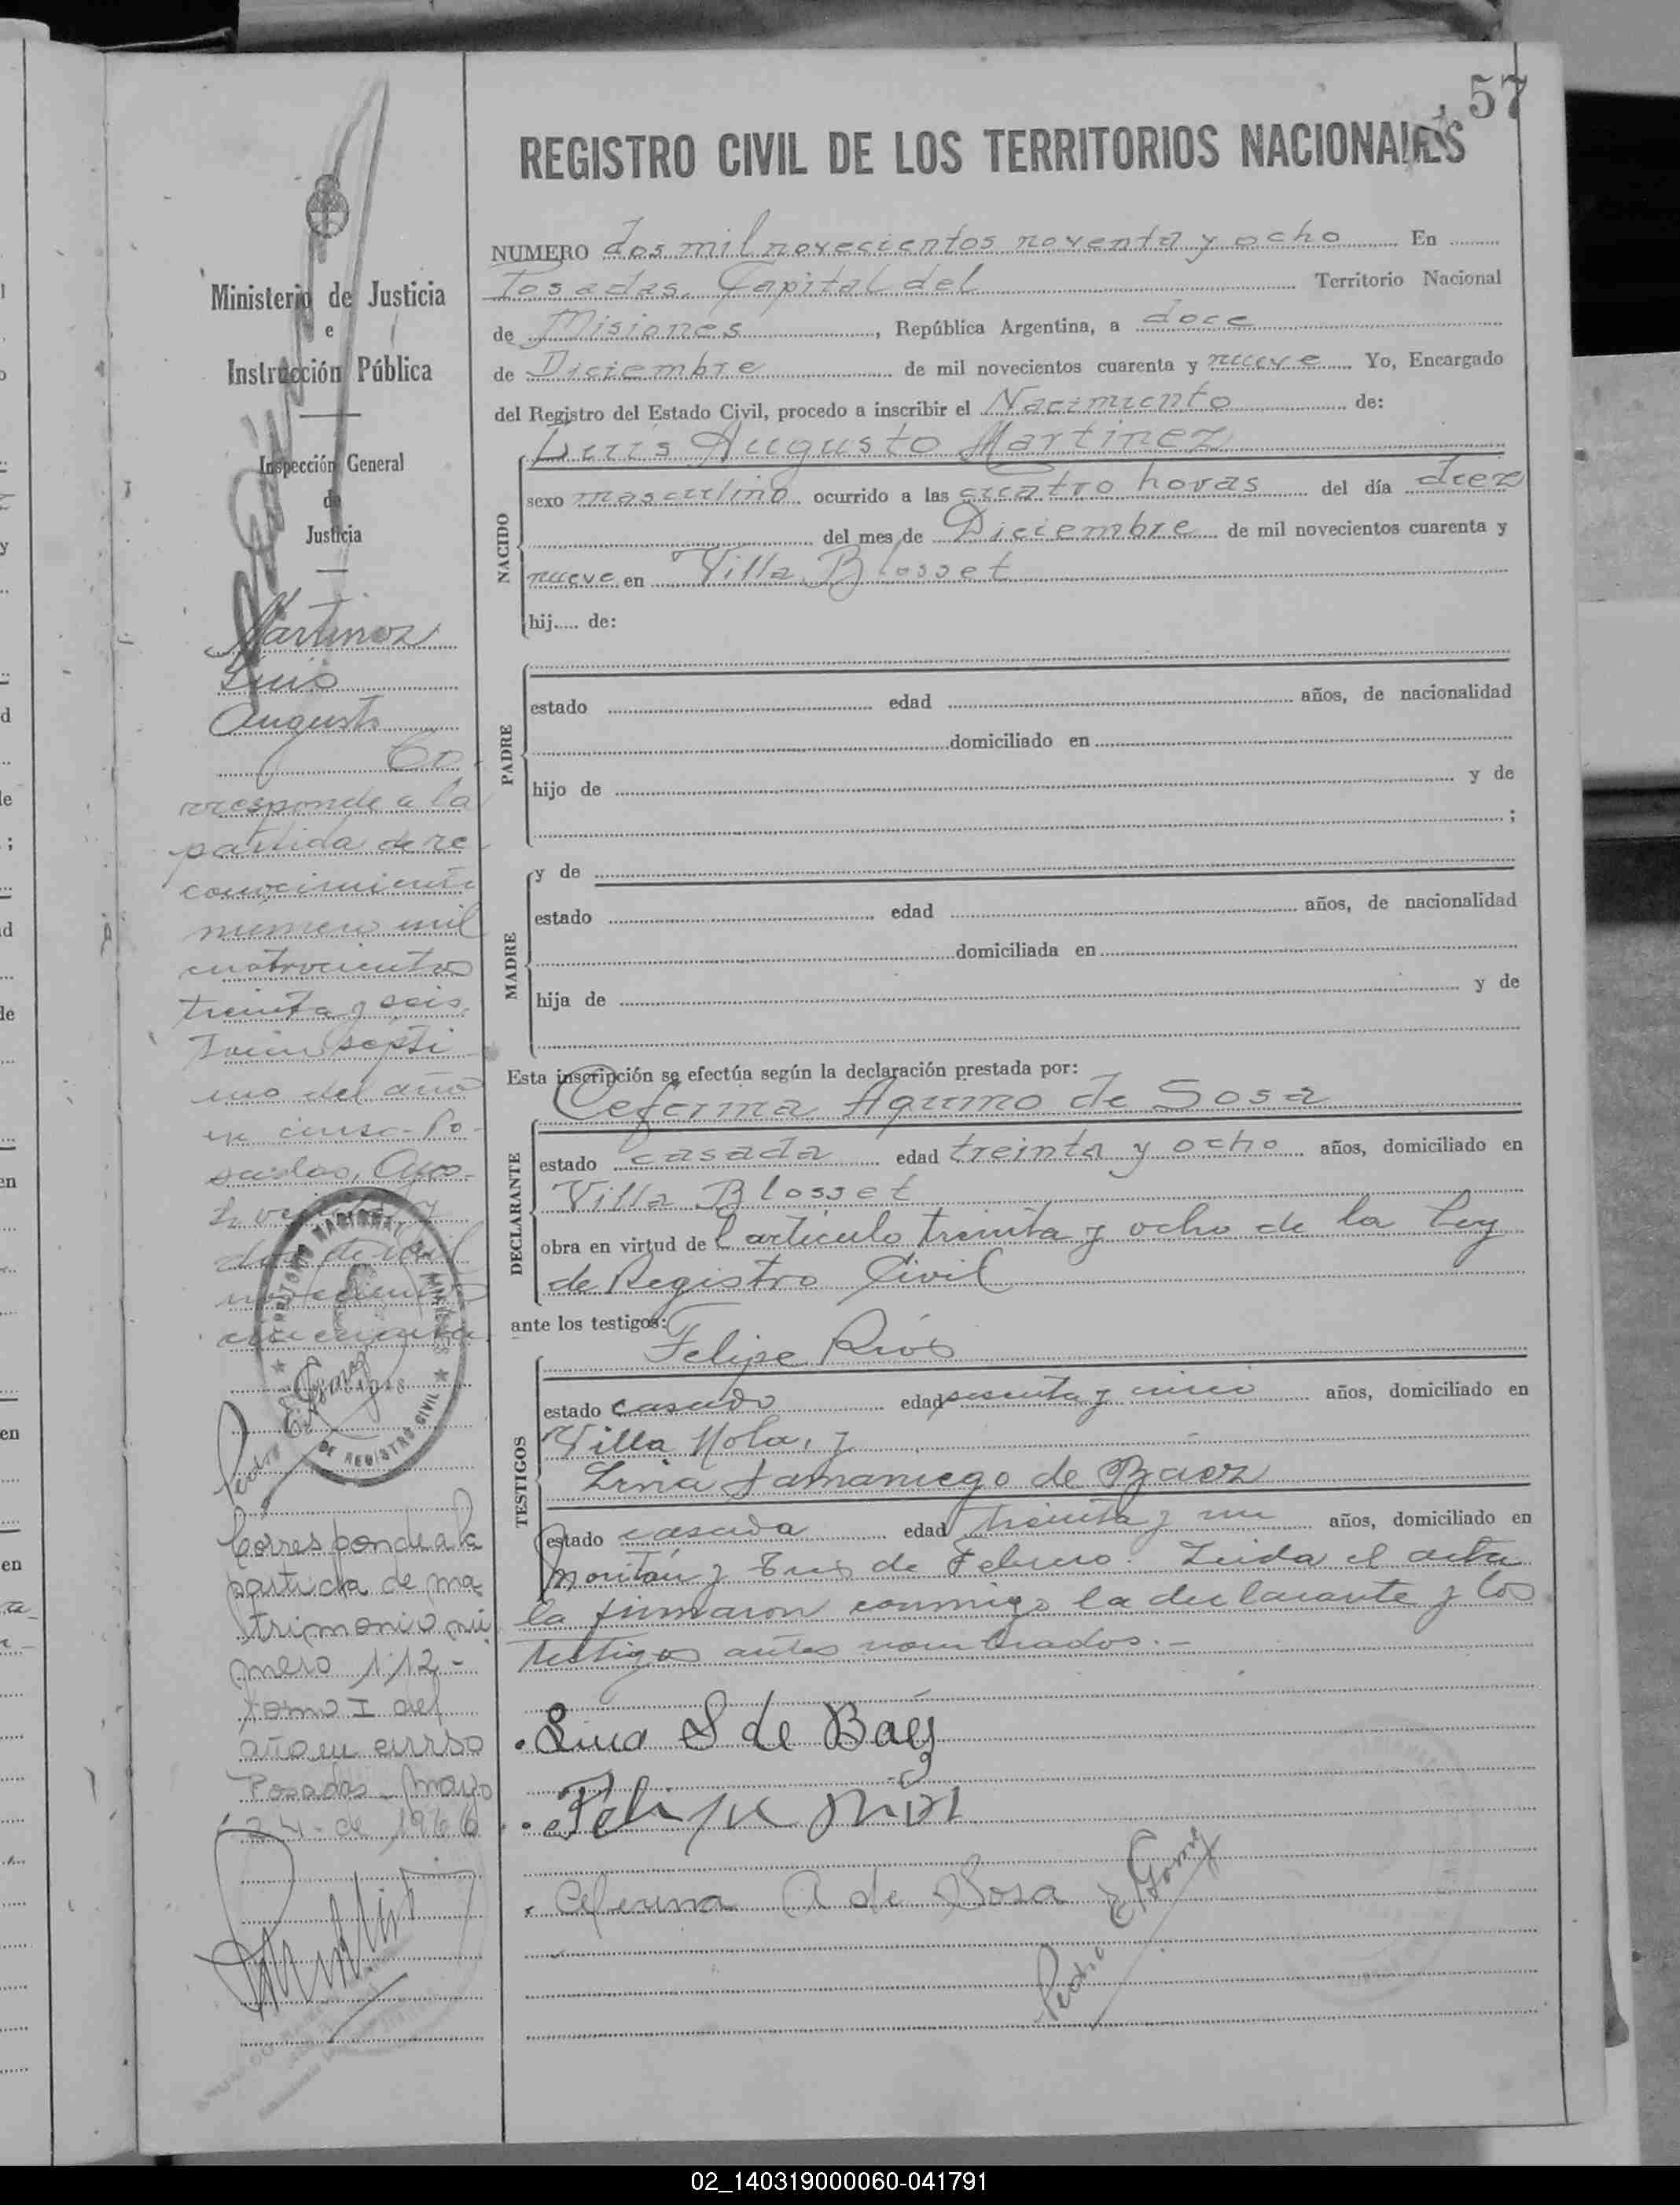 57
REGISTRO CIVIL DE LOS TERRITORIOS NACIONALES
Ministerio de Justicia
e
Instrucción Pública
Inspección General
de
Justicia
Martinez
Luis
Augusto
Co
rresponde a la
partida de re
conocimiento
número mil
cuatrocientos
treinta y seis
Tomo septi
mo del año
en curso - Po
sadas, Agos
to veinte y
dos de mil
novecientos
cincuenta
Pedro E. Gomez
Corresponde a la
partida de ma
trimonio nú
mero 112 -
tomo I del
año en curso
Posadas - Mayo
24 - de 1966
NUMERO dos mil novecientos noventa y ocho En
Posadas, Capital del Territorio Nacional
de Misiones, República Argentina, a doce
de Diciembre de mil novecientos cuarenta y nueve Yo, Encargado
del Registro del Estado Civil, procedo a inscribir el Nacimiento de:
Luis Augusto Martinez
NACIDO
sexo masculino ocurrido a las cuatro horas del día diez
del mes de Diciembre de mil novecientos cuarenta y
nueve en Villa Blosset
hij.... de:
PADRE
estado edad años, de nacionalidad
domiciliado en
hijo de y de
;
MADRE
y de
estado edad años, de nacionalidad
domiciliada en
hija de y de
Esta inscripción se efectúa según la declaración prestada por:
DECLARANTE
Ceferina Aquino de Sosa
estado casada edad treinta y ocho años, domiciliado en
Villa Blosset
obra en virtud del artículo treinta y ocho de la Ley
de Registro Civil
ante los testigos:
TESTIGOS
Felipe Ríos
estado casado edad sesenta y cinco años, domiciliado en
Villa Mola, y
Lina Samaniego de Baez
estado casada edad treinta y un años, domiciliado en
Moritán y Tres de Febrero. Leida el acta
la firmaron conmigo la declarante y los
testigos antes nombrados.-
Lina S de Baez
Felipe Ríos
Ceferina A de Sosa
Pedro E. Gomez
02_140319000060-041791